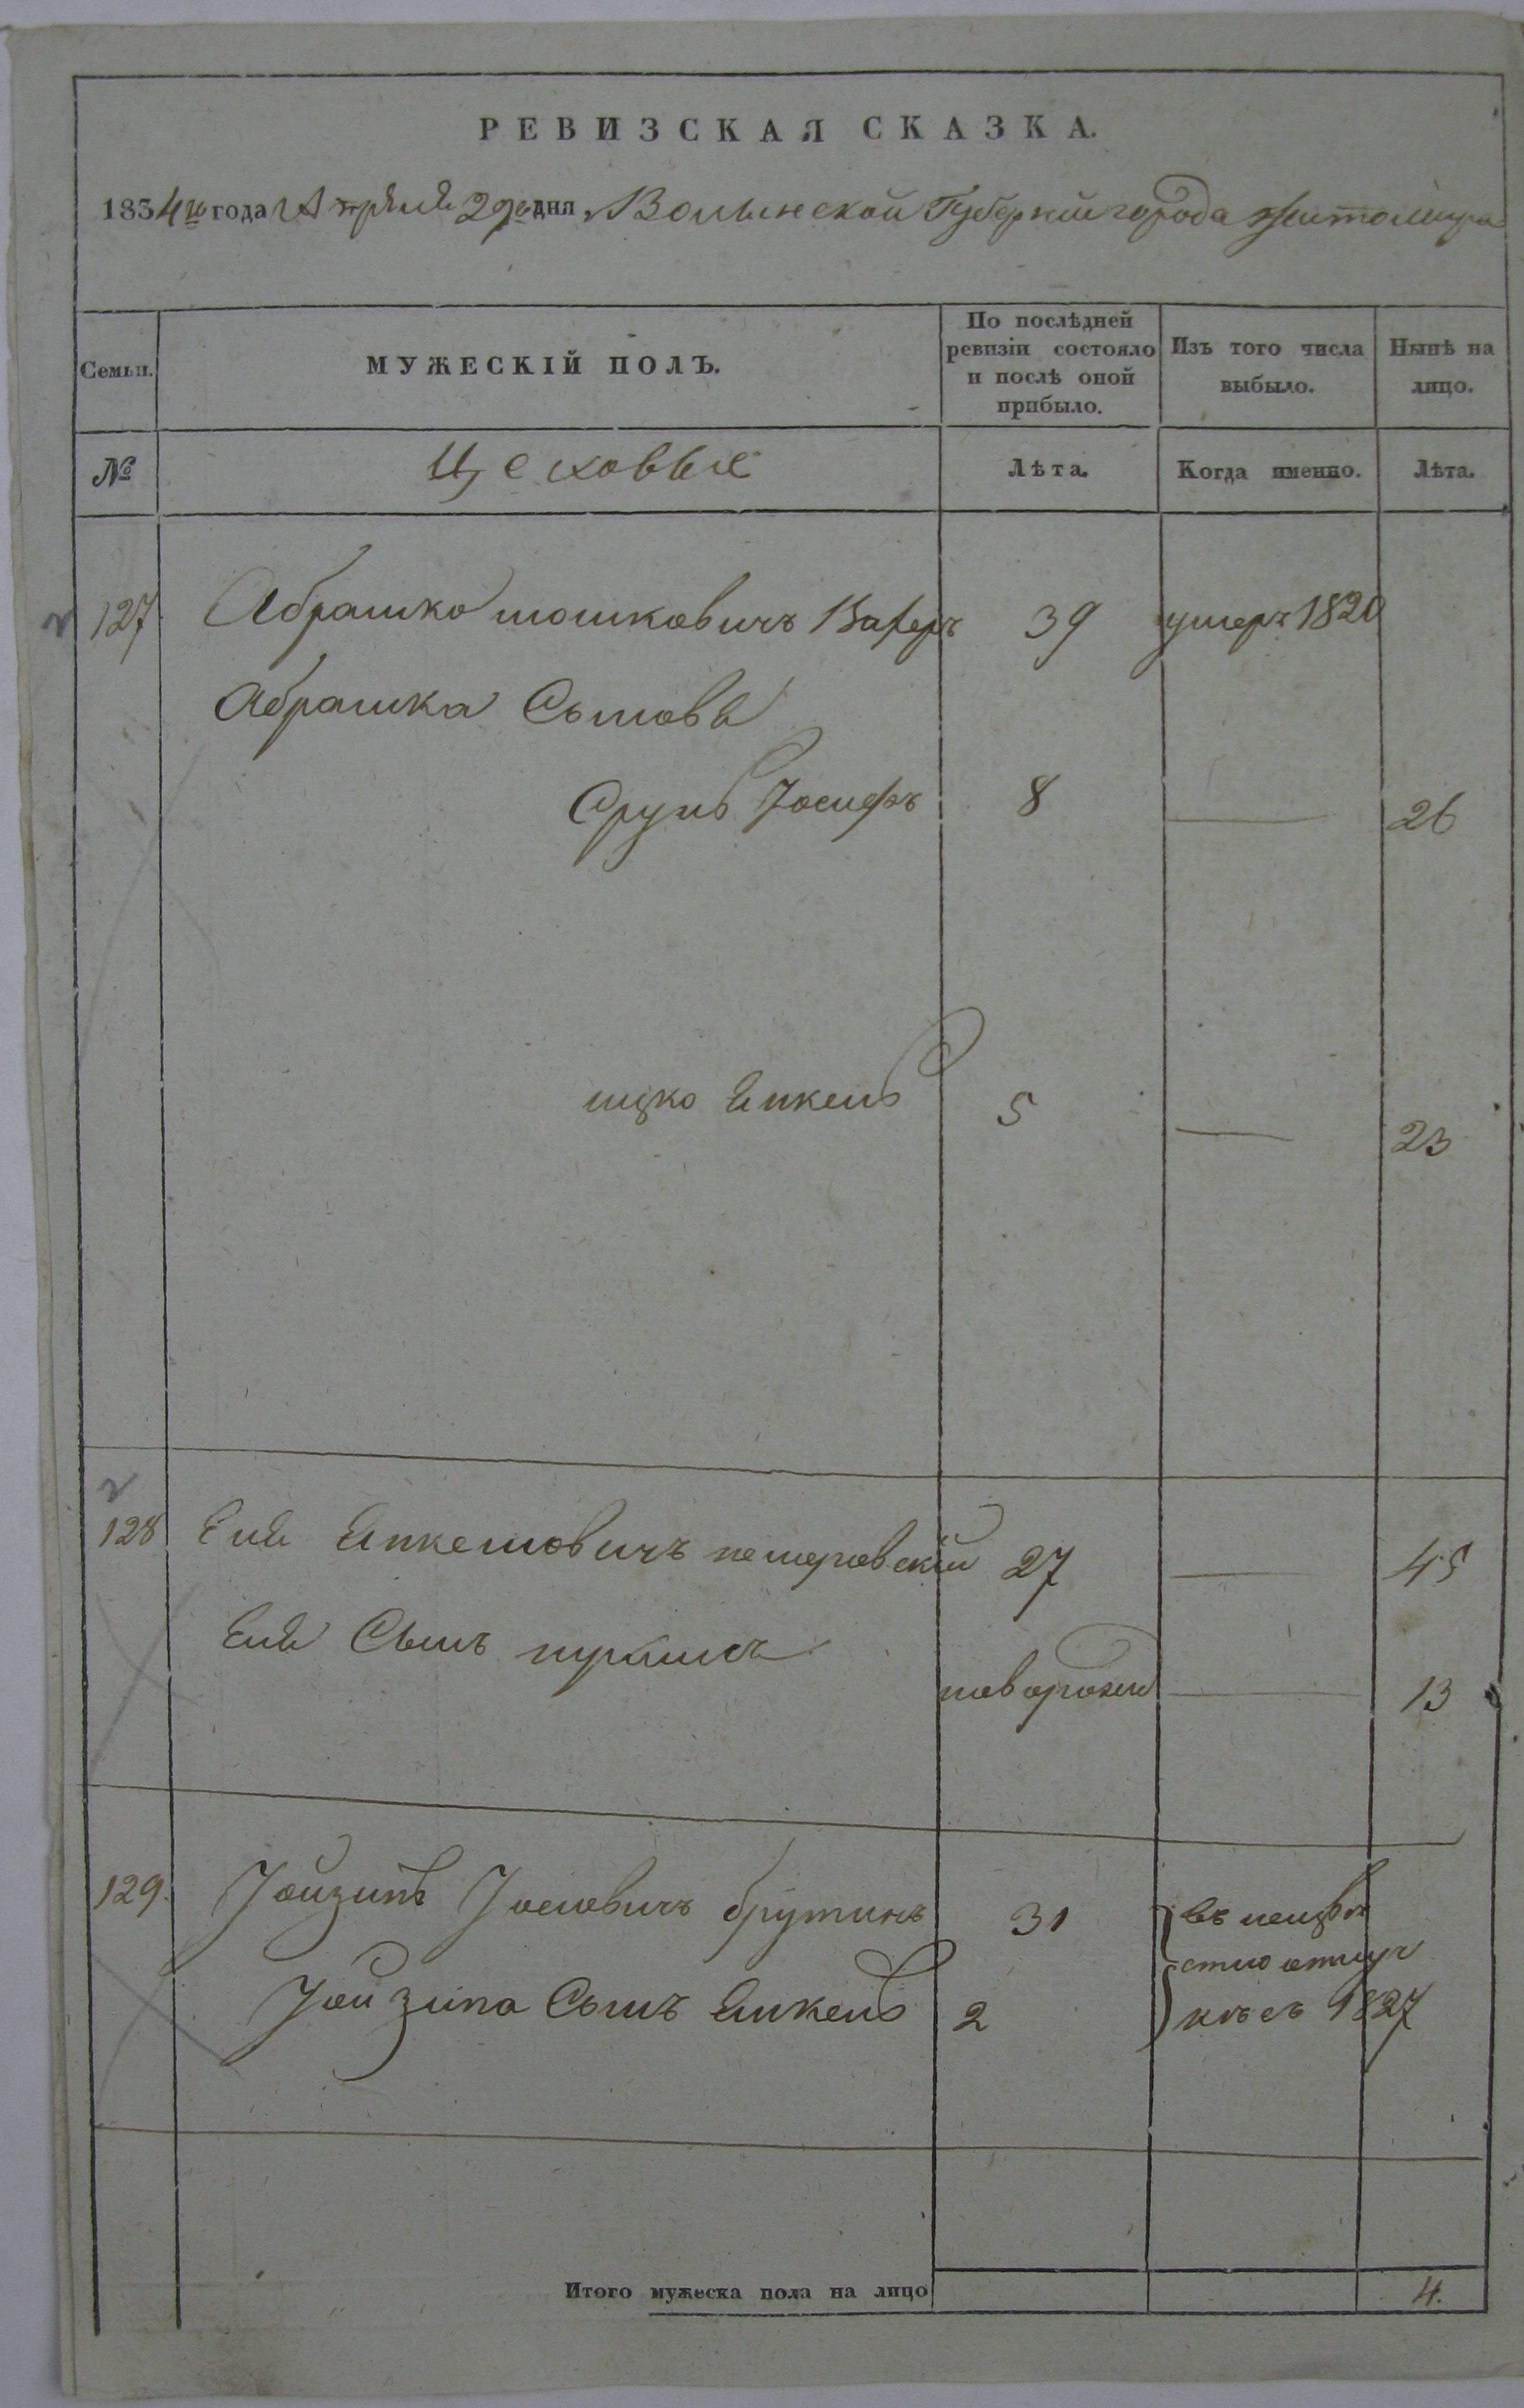 РЕВИЗСКАЯ СКАЗКА.
1834го года Апреля 29го дня, Волынской Губернии города Житомира
Семьи.
МУЖЕСКІЙ ПОЛЪ.
По послѣдней
ревизіи состояло
и послѣ оной
прибыло.
Изъ того числа
выбыло.
Нынѣ на
лицо.
№
Цеховые
Лѣта.
Когда именно.
Лѣта.
127 Абрашко Мошковичъ 39 умеръ 1820
Абрашка Сыновья
Сруль Іосифъ 8 — 26
ицко Янкель 5 — 23
128 Еля Янкелювичъ 27 — 45
Еля Сынъ новорожен — 13
129. Іойзипъ Іосиовичъ брутинъ 31 въ неизвѣ
стно отлуч
Іойзипа Сынъ Янкель 2 кѣ съ 1827
Итого мужеска пола на лицо 4.